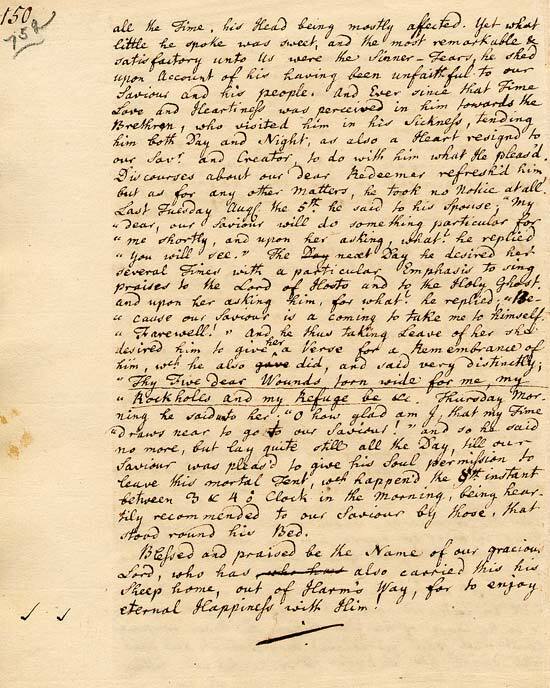 150
752
all the Time, his Head being mostly affected. Yet what
little he spoke was sweet, and the most remarkable &
satisfactory unto Us were the Sinner-Tears, he shed
upon Account of his having been unfaithful to our
Saviour and his people. And Ever since that Time
Love and Heartiness was perceived in him towards the
Brethren, who visited him in his Sickness, tending
him both Day and Night, as also a Heart resign'd to
our Savr. and Creator, to do with him what He pleas'd.
Discourses about our Dear Redeemer refresh'd him,
but as for any other Matters, he took no Notice at all.
Last Tuesday Aug. the 5th. he said to his Spouse; "My
"Dear, our Saviour will do something particular for
"me shortly, and upon her asking, what? he replied
"You will see." The Day next Day he desired her
several Times with a particular Emphasis to sing
praises to the Lord of Hosts and to the Holy Ghost,
and upon her asking him, for what? he replied, "Be-
"cause our Saviour is a coming to take me to himself.
"Farewell!" And he thus taking Leave of her she
desired him to give her a Verse for a Remembrance of
him, wch. he also gave did, and said very distinctly;
"Thy Five Dear Wounds torn wide for me, my
"Rockholes and my Refuge be &c. Thursday Mor-
ning he said to her: "O how glad am I, that my Time
"draws near to go to our Saviour!" and so he said
no more, but lay quite still all the Day, till our
Saviour was pleas'd to give his Soul permission to
leave this mortal Tent, wch happen'd the 8th instant
between 3 & 4 o Clock in the Morning, being hear-
tily recommended to our Saviour by those, that
stood round his Bed.
Blessed and praised be the Name of our gracious
Lord, who has who has also carried this his
Sheep home, out of Harm's Way, for to enjoy
eternal Happiness with Him!